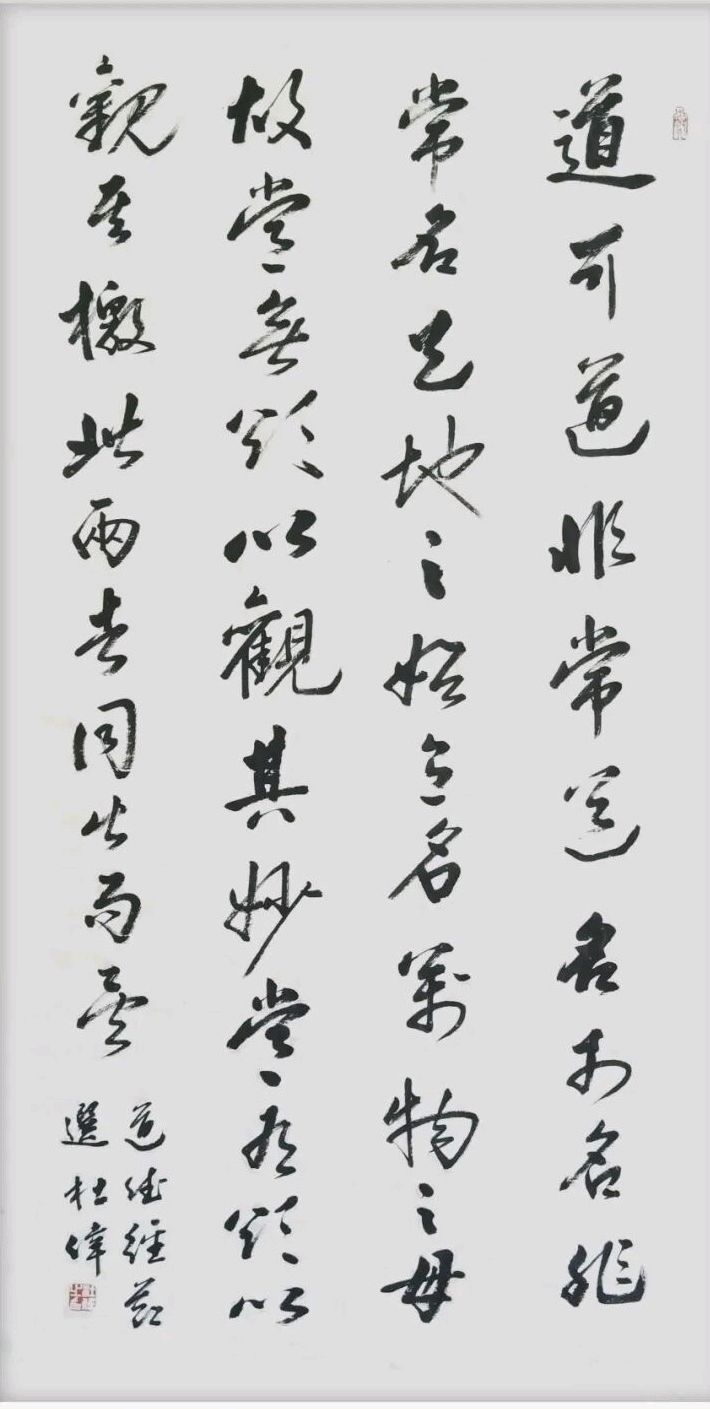 道可道非常道名可名非
常名天地之始有名萬物之母
故常無欲以觀其妙常有欲以
觀其檄此兩者同出而異
道德經節
選杜偉